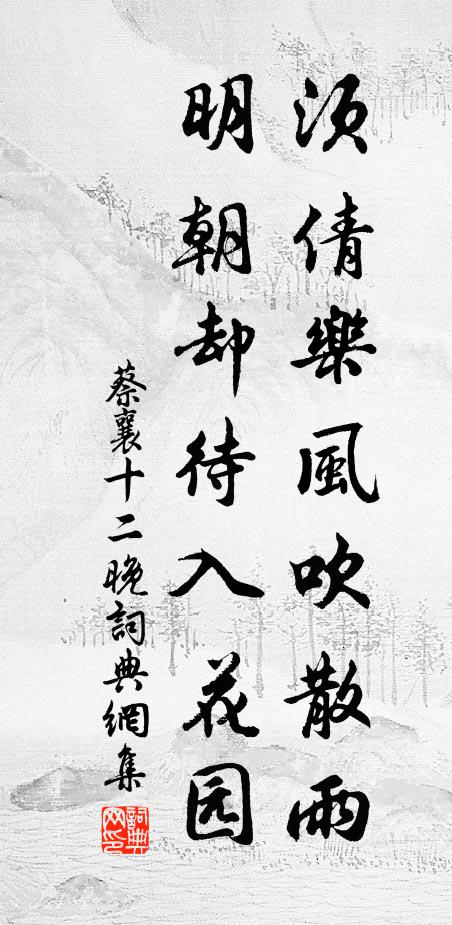 須倩樂風吹散雨
明朝却待入花园
蔡襄十二晚詞典網集
詞典网印